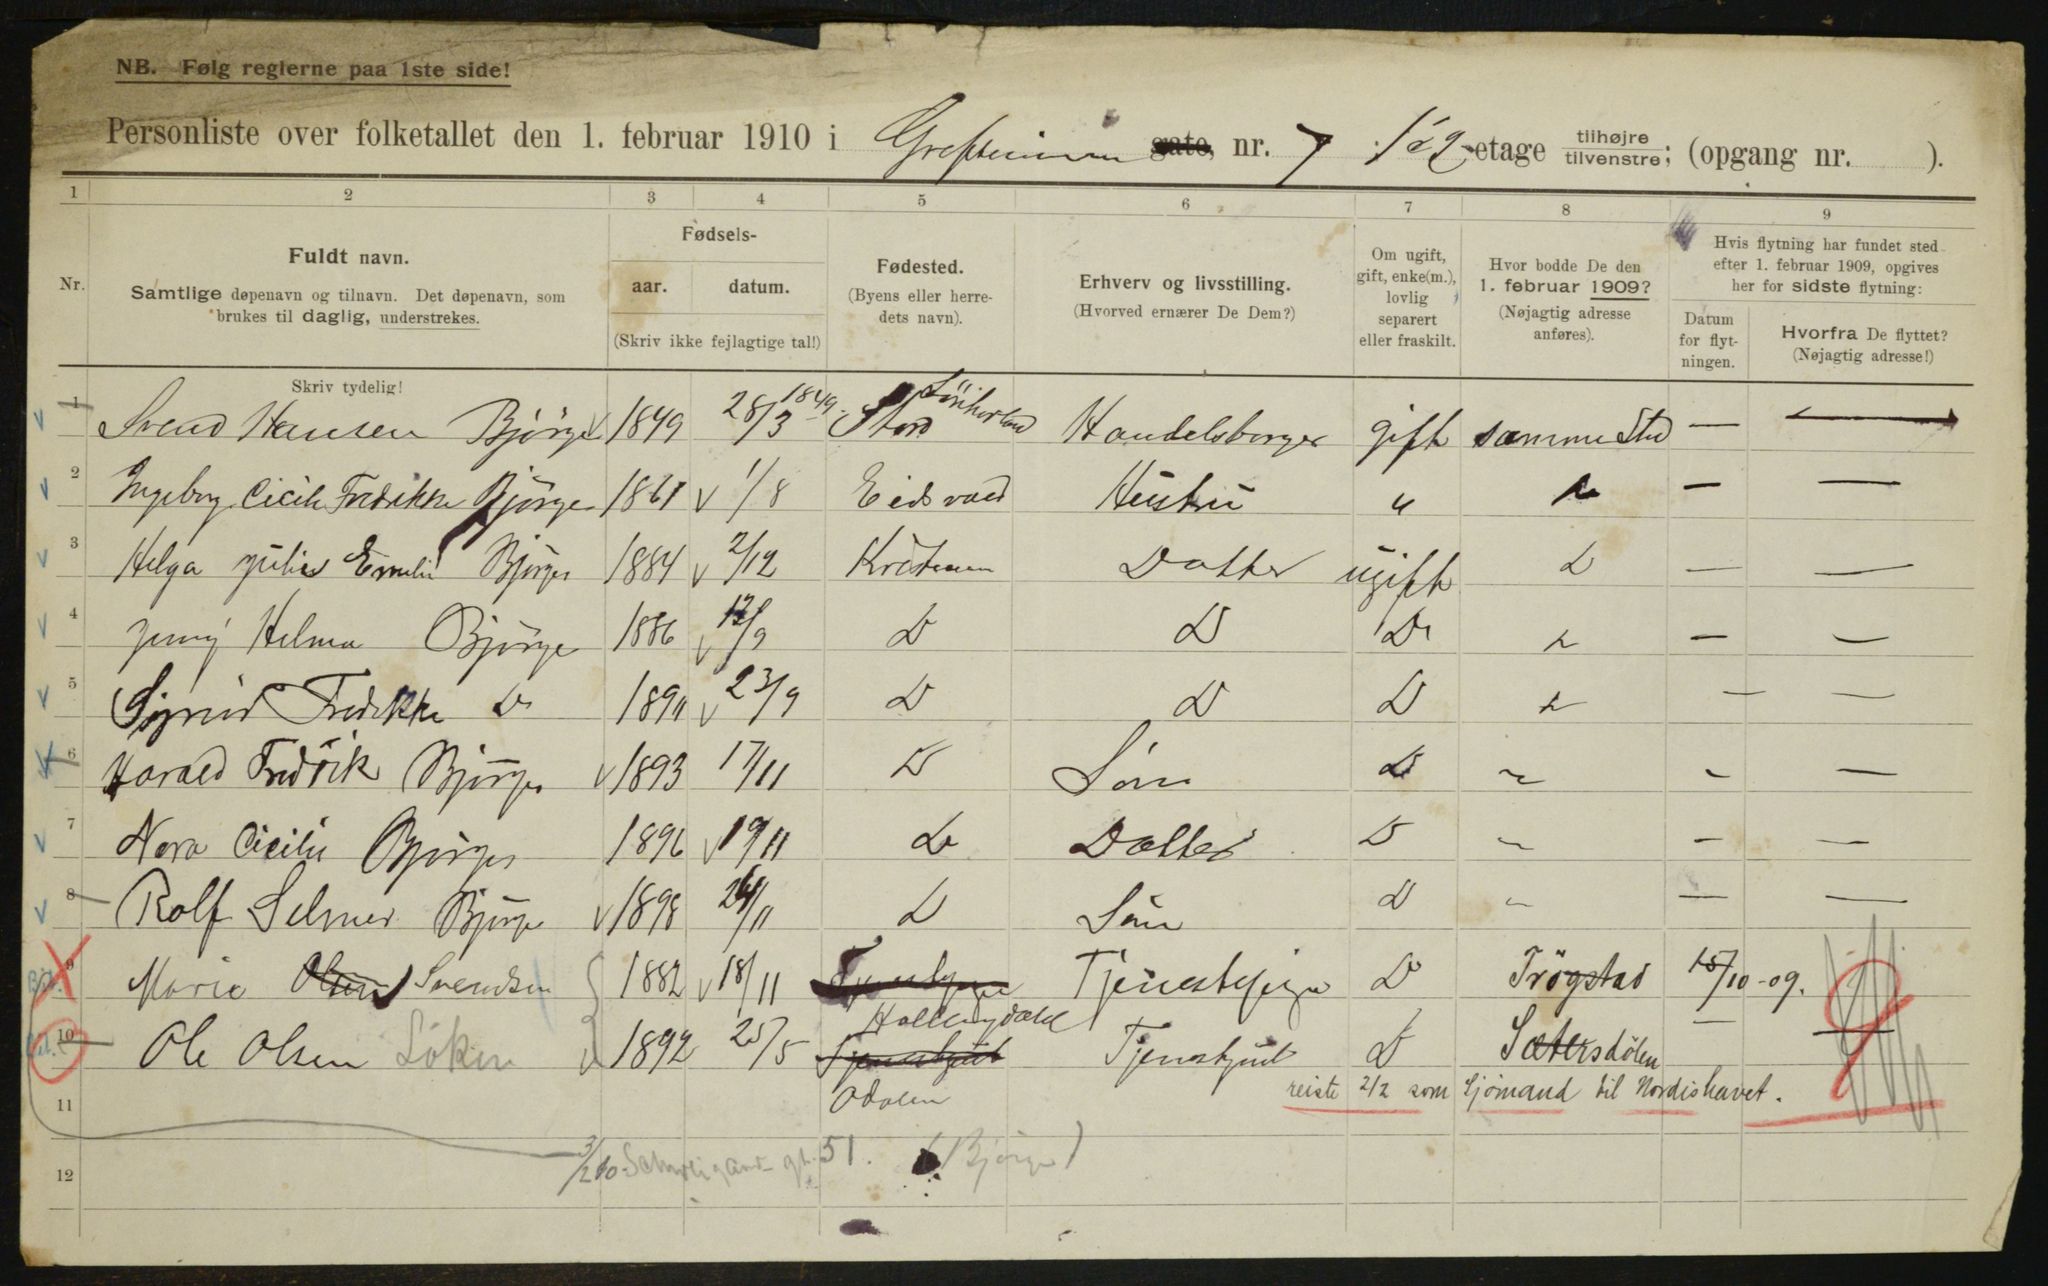 NB. Følg reglerne paa 1ste side!
Personliste over folketallet den 1. februar 1910 i Grefsenveien gate, nr. 7 1 og 2 etage tilhøjre tilvenstre; (opgang nr. ).
1 2 3 4 5 6 7 8 9
Nr.
Fuldt navn.
Samtlige døpenavn og tilnavn. Det døpenavn, som
brukes til daglig, understrekes.
Skriv tydelig!
Fødsels-
aar. datum.
(Skriv ikke fejlagtige tal!)
Fødested.
(Byens eller herre-
dets navn).
Erhverv og livsstilling.
(Hvorved ernærer De Dem?)
Om ugift,
gift, enke(m.),
lovlig
separert
eller fraskilt.
Hvor bodde De den
1. februar 1909?
(Nøjagtig adresse
anføres).
Hvis flytning har fundet sted
efter 1. februar 1909, opgives
her for sidste flytning:
Datum
for flyt-
ningen.
Hvorfra De flyttet?
(Nøjagtig adresse!)
1 Svend Hansen Bjørge 1849 28/3 1849 Stord Sönhorland Handelsborger gift samme Sted — —
2 Ingeborg Cicilie Fredrikke Bjørge 1861 1/8 Eidsvold Hustru " " — —
3 Helga Julie Emilie Bjørge 1884 2/12 Kristiania Datter ugift D — —
4 Jenny Helma Bjørge 1886 12/9 D D Do " — —
5 Sigrid Fredrikke Do 1891 23/9 D D D " — —
6 Harald Fredrik Bjørge 1893 17/11 D Søn D " - —
7 Nora Cicilie Bjørge 1896 19/11 Do Datter D " - —
8 Rolf Selmer Bjørge 1898 24/11 D Søn D " — —
9 Marie Olsen Svendsen 1882 18/11 Tjenestepige Hallingdalel Tjenestepige Do Trögstad 15/10-09.
10 Ole Olsen Löken 1892 25/5 Tjenestgut Odalen Tjenestgut D Sætersdölen —
11 reiste 2/2 som Sjömand til Nordishavet.
12 3/2 10 Schweigaards gt. 51. (Bjørge)